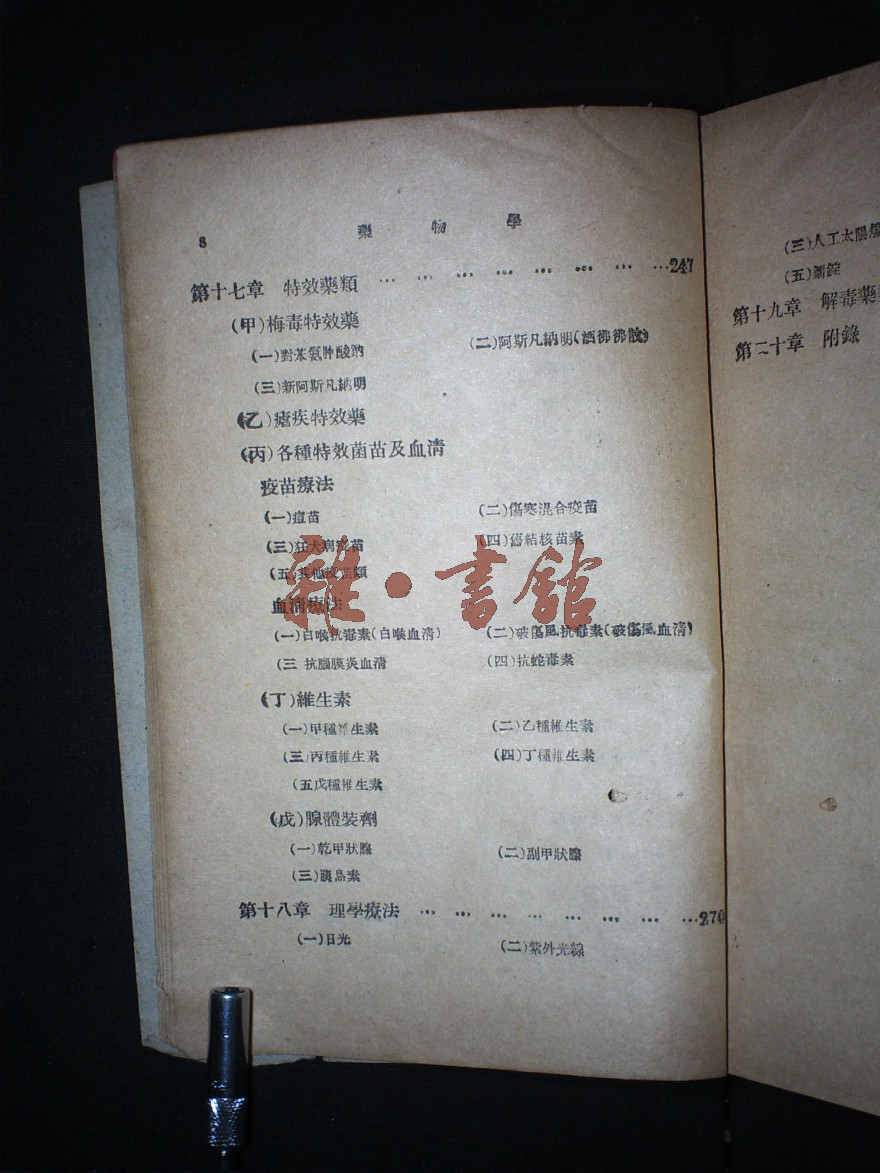 8 藥物學
第十七章 特效藥類 … … … … … … … …247
(甲)梅毒特效藥
(一)對苯氨胂酸鈉 (二)阿斯凡納明(洒彿彿散)
(三)新阿斯凡納明
(乙)瘧疾特效藥
(丙)各種特效菌苗及血清
疫苗療法
(一)痘苗 (二)傷寒混合疫苗
(三)狂犬病疫苗 (四)舊結核苗素
(五)其他疫苗類
血清療法
(一)白喉抗毒素(白喉血清) (二)破傷風抗毒素(破傷風血清)
(三 抗腦膜炎血清 (四)抗蛇毒素
(丁)維生素
(一)甲種維生素 (二)乙種維生素
(三)丙種維生素 (四)丁種維生素
(五戊種維生素
(戊)腺體裝劑
(一)乾甲狀腺 (二)副甲狀腺
(三)胰島素
第十八章 理學療法 … … … … … … … …270
(一)日光 (二)紫外光線
雜·書館
(三)人工太陽燈
(五)鐳錠
第十九章 解毒藥
第二十章 附錄